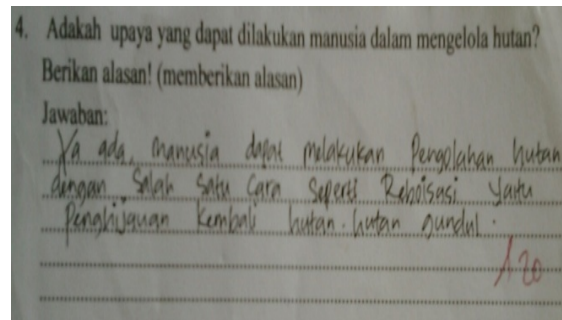 4. Adakah upaya yang dapat dilakukan manusia dalam mengelola hutan?
Berikan alasan! (memberikan alasan)
Jawaban:
Ya ada, manusia dapat melakukan Pengolahan hutan
dengan Salah Satu Cara Seperti Reboisasi Yaitu
Penghijauan Kembali hutan-hutan gundul.
20